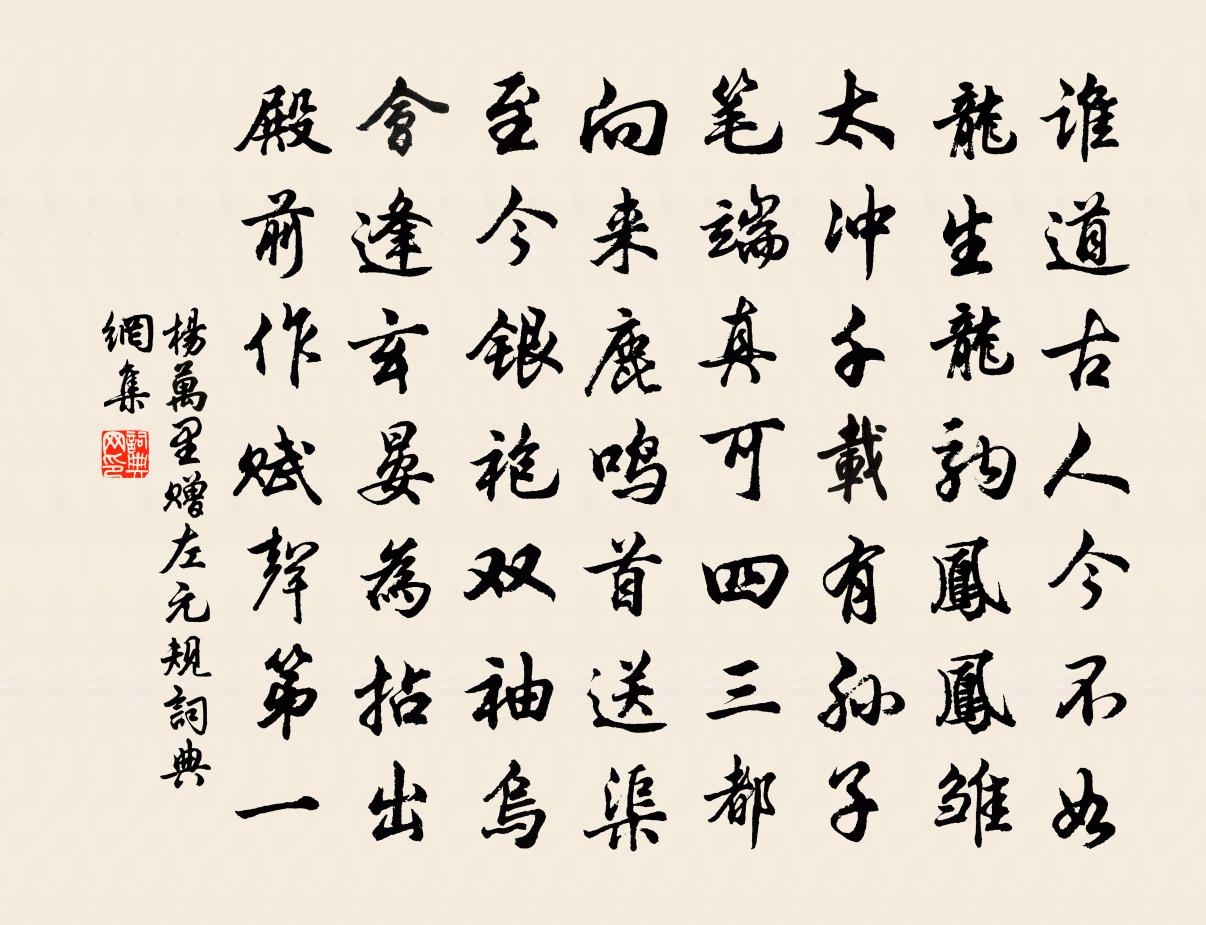 谁道古人今不如
龍生龍駒鳳鳳雛
太冲千載有孙子
笔端真可四三都
向来鹿鸣首送渠
至今银袍双袖烏
會逢玄晏為拈出
殿前作赋聲第一
楊萬里赠左元规詞典
網集
詞典
网印